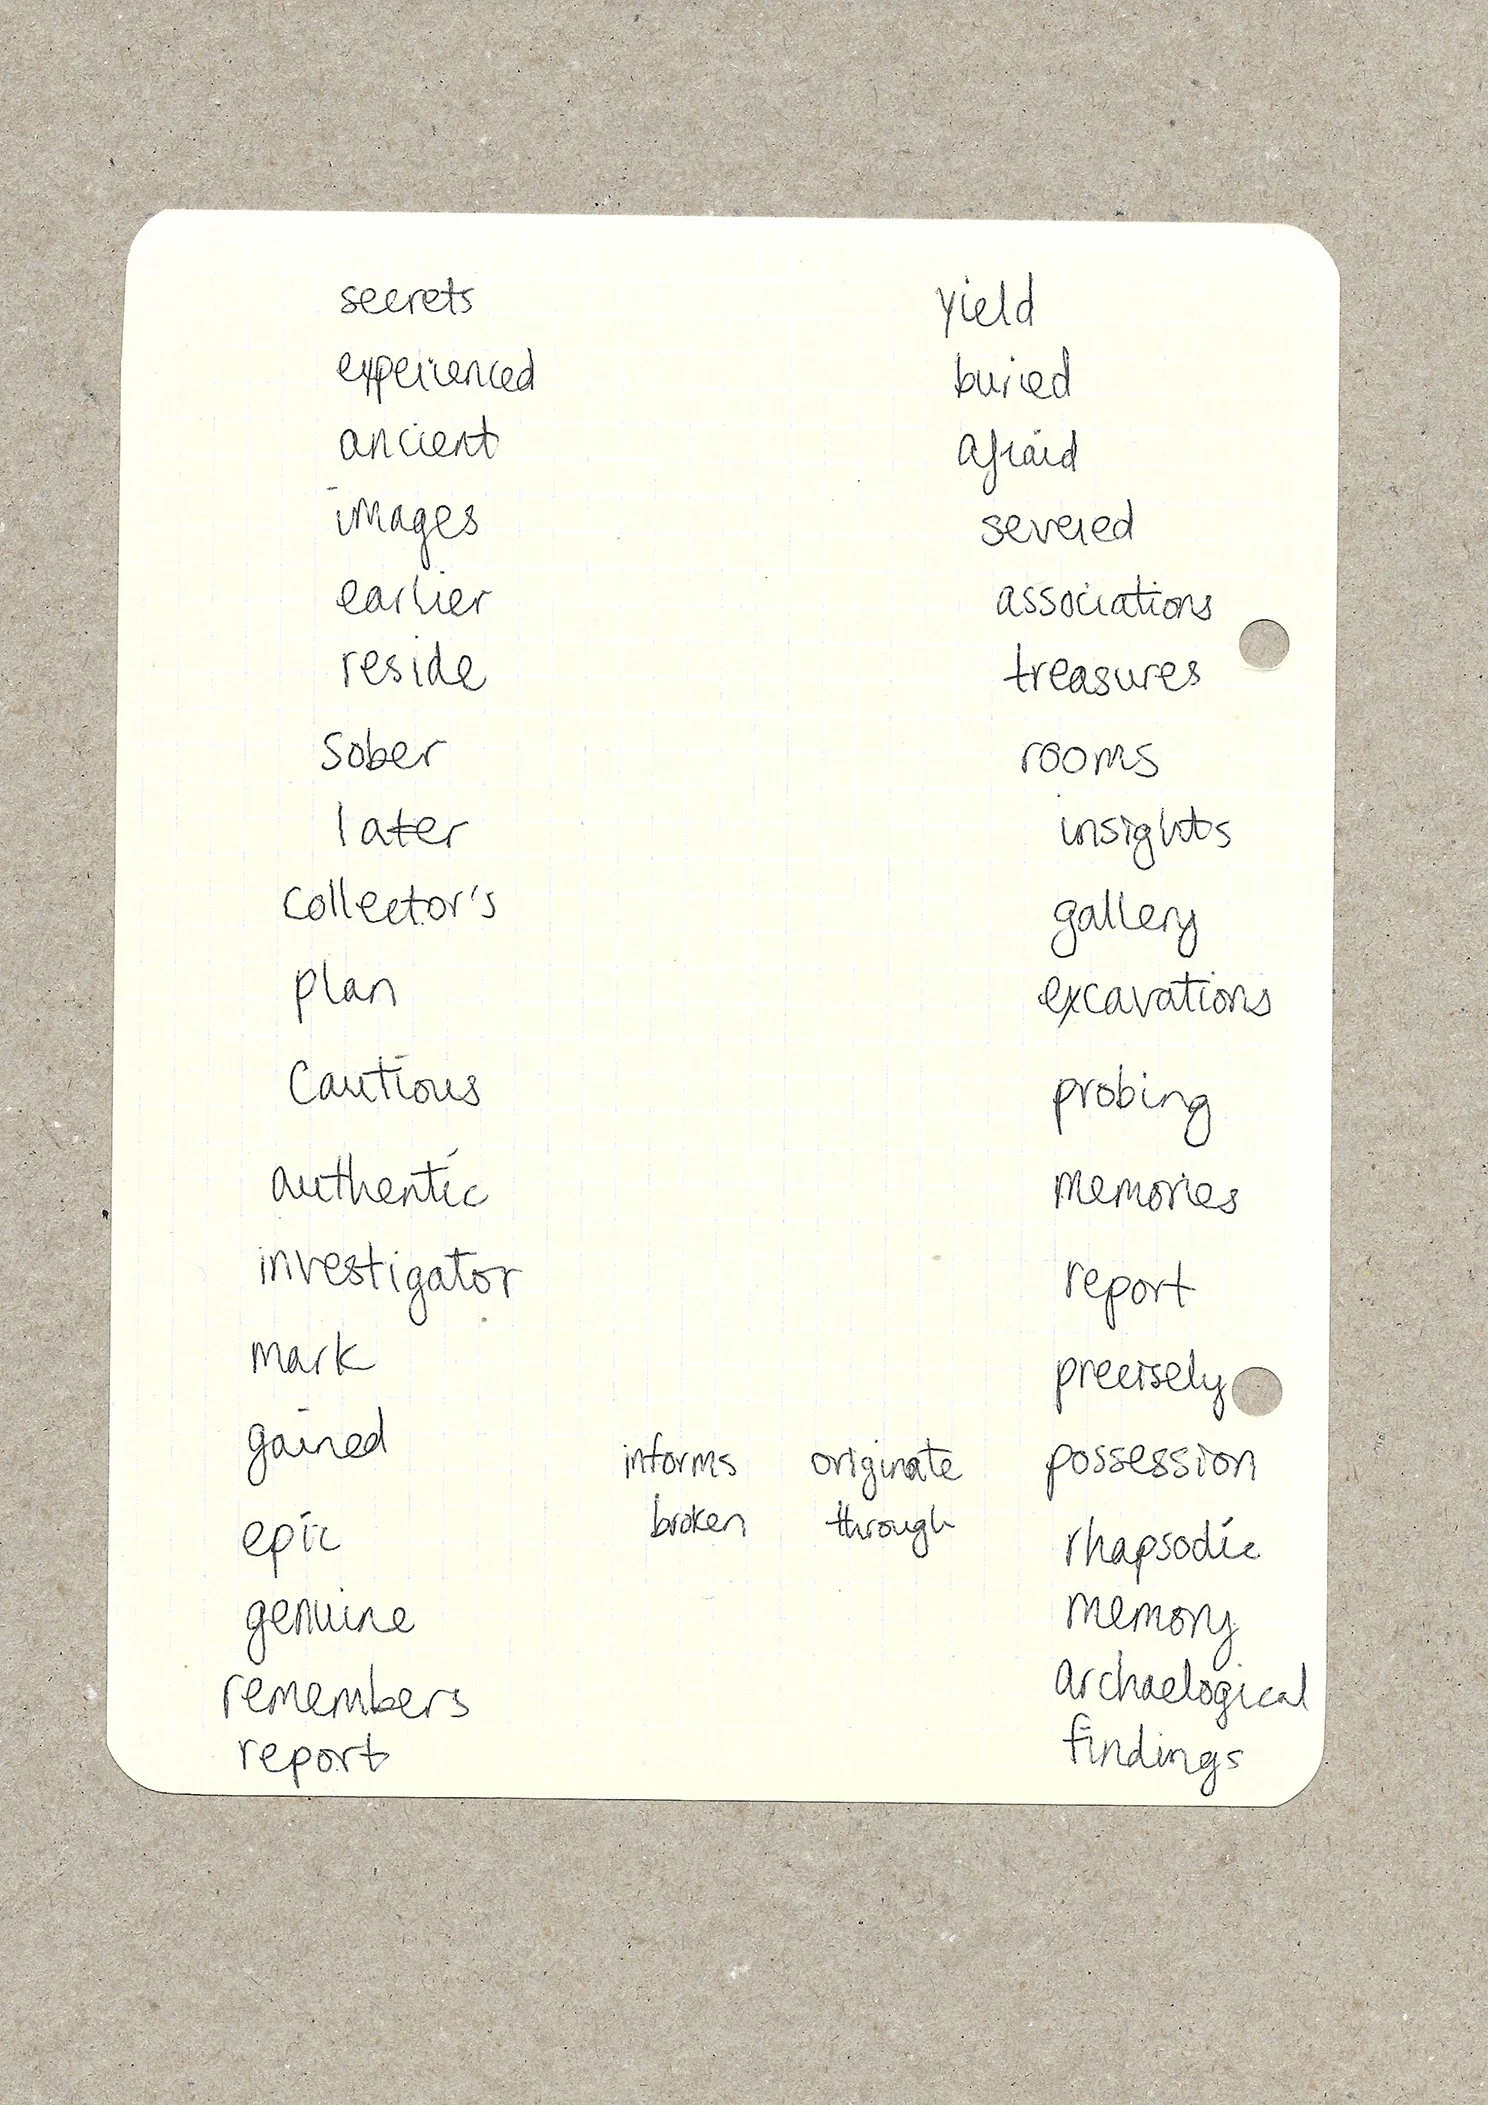 secrets yield
experienced buried
ancient afraid
images severed
earlier associations
reside treasures
sober rooms
later insights
collector's gallery
plan excavations
cautious probing
authentic memories
investigator report
mark precisely
gained informs originate possession
broken through
epic rhapsodic
genuine memory
remembers archaelogical
report findings